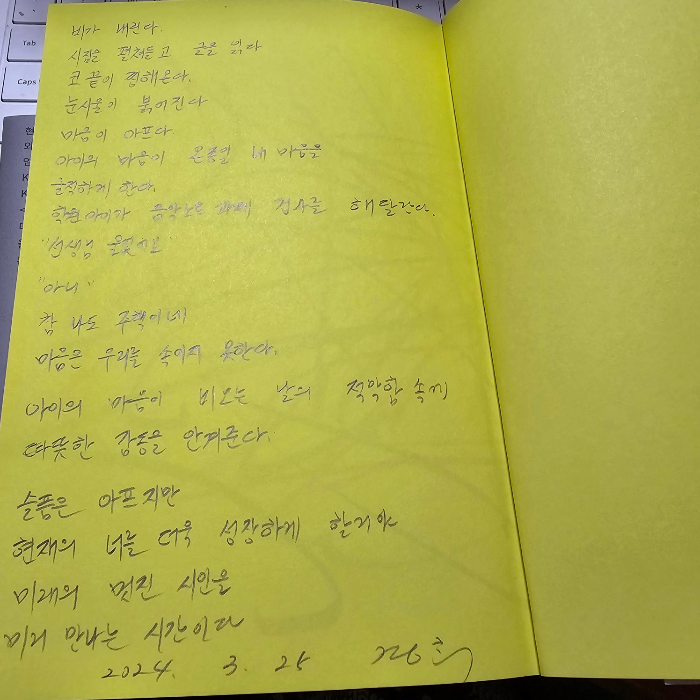 비가 내린다.
시집을 펼쳐들고 글을 읽다
코 끝이 찡해온다.
눈시울이 붉어진다
마음이 아프다
아이의 마음이 온종일 내 마음을
하게 한다.
아이가 해달란다.
"선생님
"아니"
참 나도 주책이네
마음은 우리를 속이지 못한다.
아이의 마음이 비오는 날의 적막함 속에
따뜻한 감동을 안겨준다.
슬픔은 아프지만
현재의 너를 더욱 성장하게 할거야
미래의 멋진 시인을
미리 만나는 시간이다
2024. 3. 25
Tab
Caps